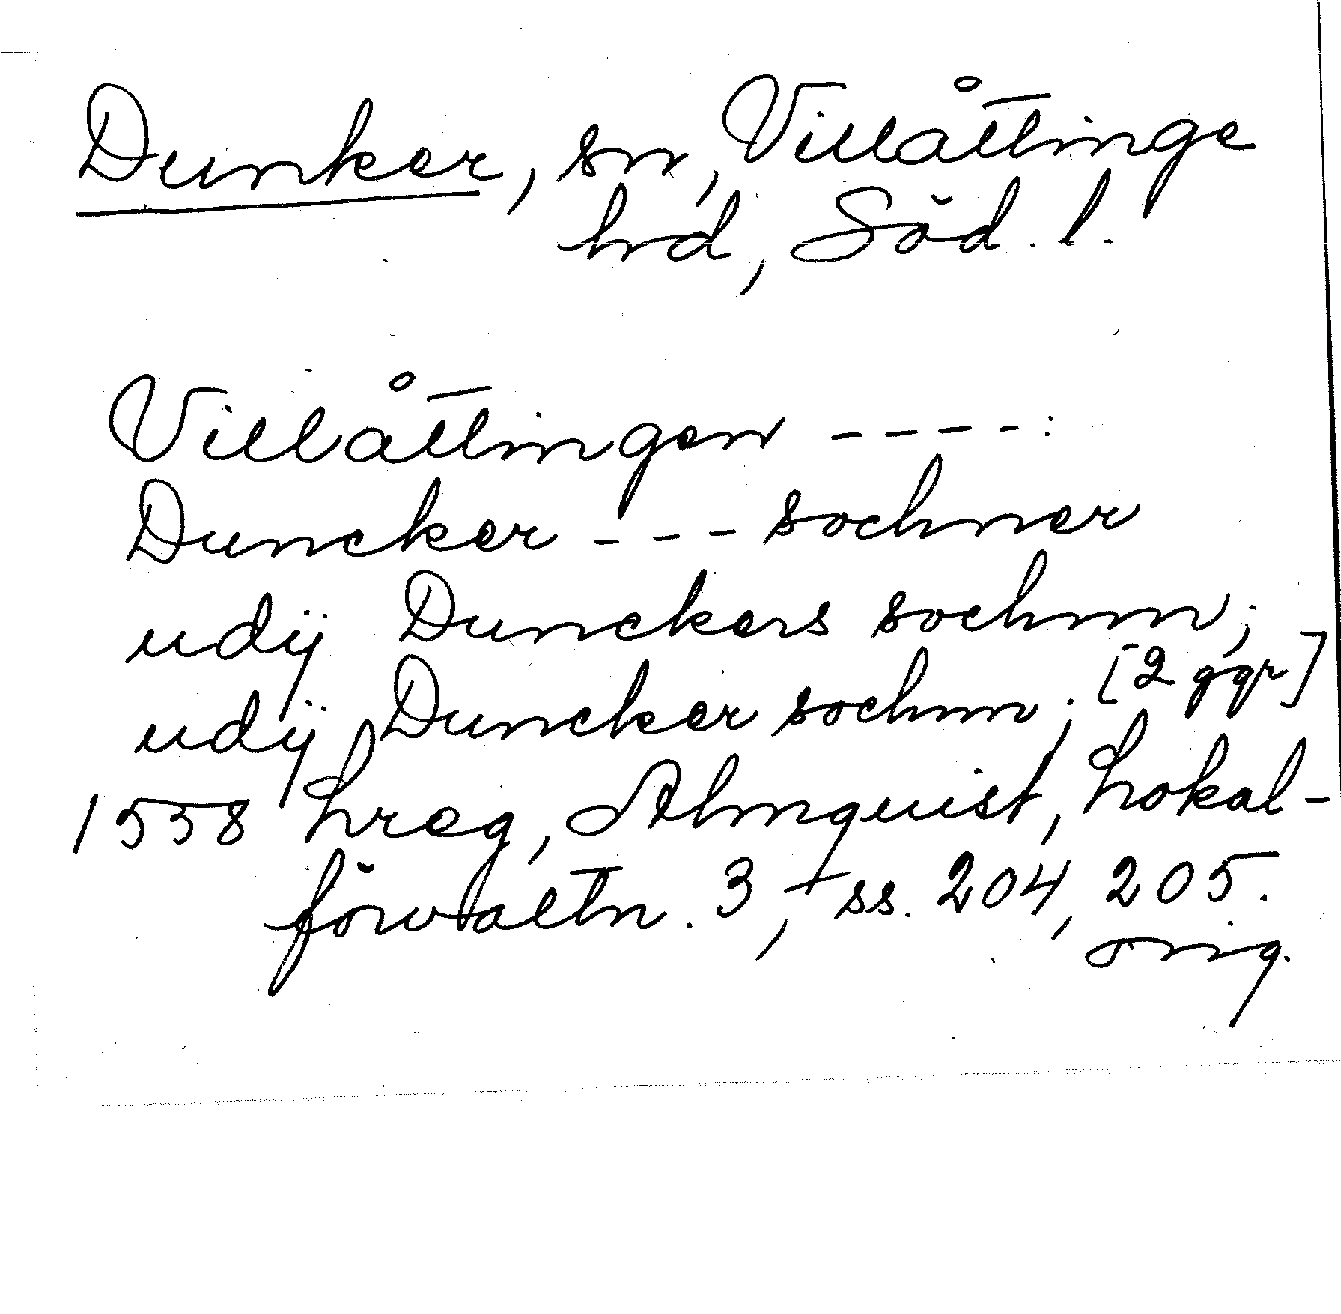 Dunker, sn, Villåttinge
hd, Söd. l.
Villåttingen ----:
Duncker --- sochner
udÿ Dunckers sochnn;
udÿ Duncker sochnn; [2 ggr]
1558 hreg, Almquist, Lokal-
förvaltn. 3, ss. 204, 205.
orig.